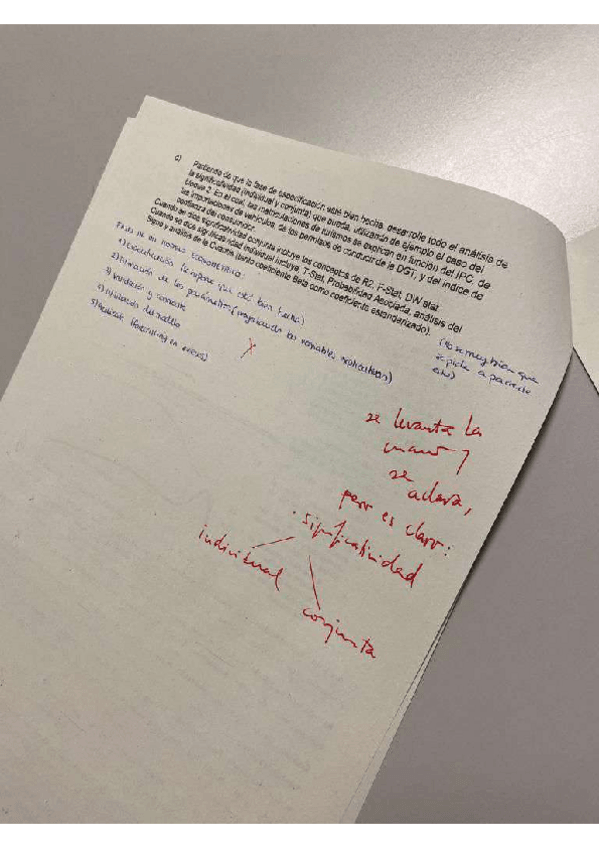 c) Partiendo de que la fase de especificación esté bien hecha, desarrolle todo el análisis de
la significatividad (individual y conjunta) que pueda, utilizando de ejemplo el caso del
bloque 2. En el cual, las matriculaciones de turismos se explican en función del IPC, de
las importaciones de vehículos, de los permisos de conducir de la DGT, y del índice de
confianza del consumidor.
Cuando se dice significatividad conjunta incluye los conceptos de R2, F-Stat, DW stat
Cuando se dice significatividad individual incluye, T-Stat, Probabilidad Asociada, análisis del
Signo y análisis de la Cuantía (tanto coeficiente Beta como coeficiente estandarizado).
(No se muy bien que
se pide a parte de
eso)
1) Especificación (suponer que está bien hecha)
2) Estimación de los parámetros (
las variables
)
3) Validación y contraste
X
se levanta la
mano y
se aclara,
pero es claro:
· significatividad
individual
conjunta